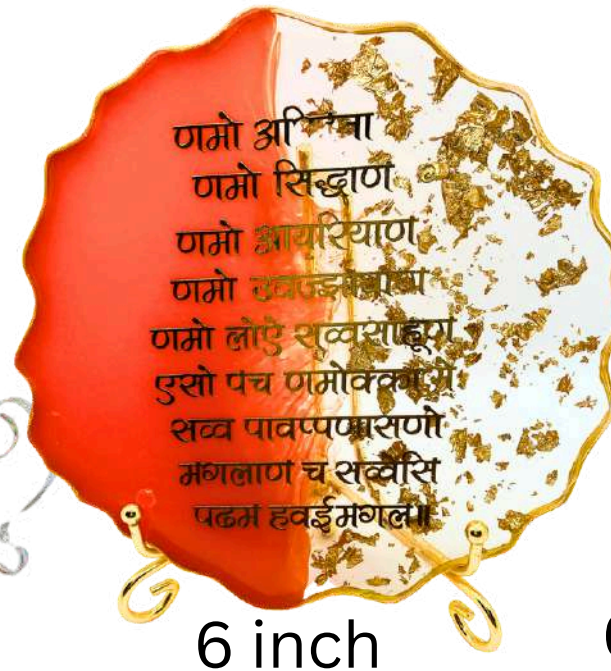 णमो
णमो सिद्धाण
णमो आयरियाण
णमो उवज्झायाण
णमो लोऐ सव्वसाहूण
एसो पच णमोक्कारो
सव्व पावप्पणासणो
मगलाण च सव्वेसि
पढम हवई मगल॥
6 inch